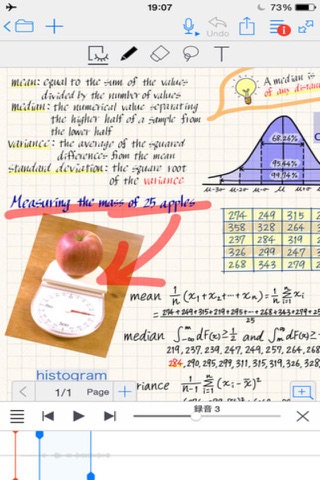 19:07
73%
Undo
T
mean: equal to the sum of the values
divided by the number of values
median: the numerical value separating
the higher half of a sample from
the lower half
variance: the average of the squared
differences from the mean
standard deviation: the square root
of the variance
A median is
of any distan
68.26%
95.44%
99.74%
μ-3σ μ-2σ μ-σ μ
Measuring the mass of 25 apples
274 249 315
358 328 264
237 284 319
326 299 247
268 343 279
mean 1/n (x₁+x₂+⋯+xₙ)= 1/n Σxᵢ
median ∫dF(x)≥1/2 and ∫dF(x)≥
219, 237, 239, 247, 249, 257, 264, 268
284, 290, 295, 299, 311, 315, 319, 326, 328,
histogram
riance 1/n-1 Σ(xᵢ-x̄)²
1/1 Page
録音 3